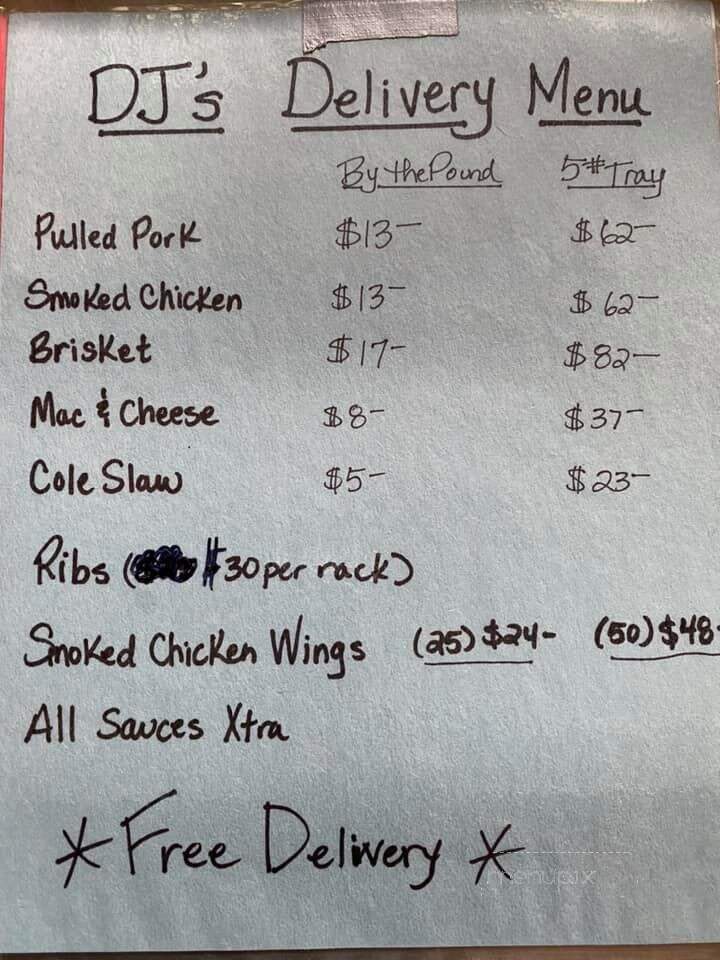 DJ's Delivery Menu
By the Pound 5# Tray
Pulled Pork $13- $62-
Smoked Chicken $13- $62-
Brisket $17- $82-
Mac & Cheese $8- $37-
Cole Slaw $5- $23-
Ribs ($30 per rack)
Smoked Chicken Wings (25) $24- (50) $48-
All Sauces Xtra
* Free Delivery *
menupix